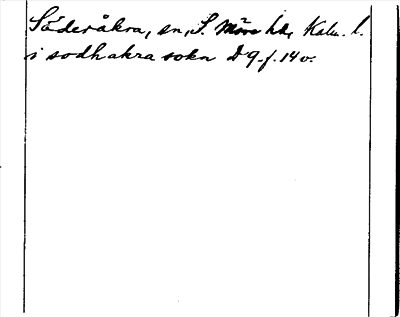 Söderåkra, sn, S. Möre hd, Kalm. l.
i sodhakra sokn D 9. f. 14 v.